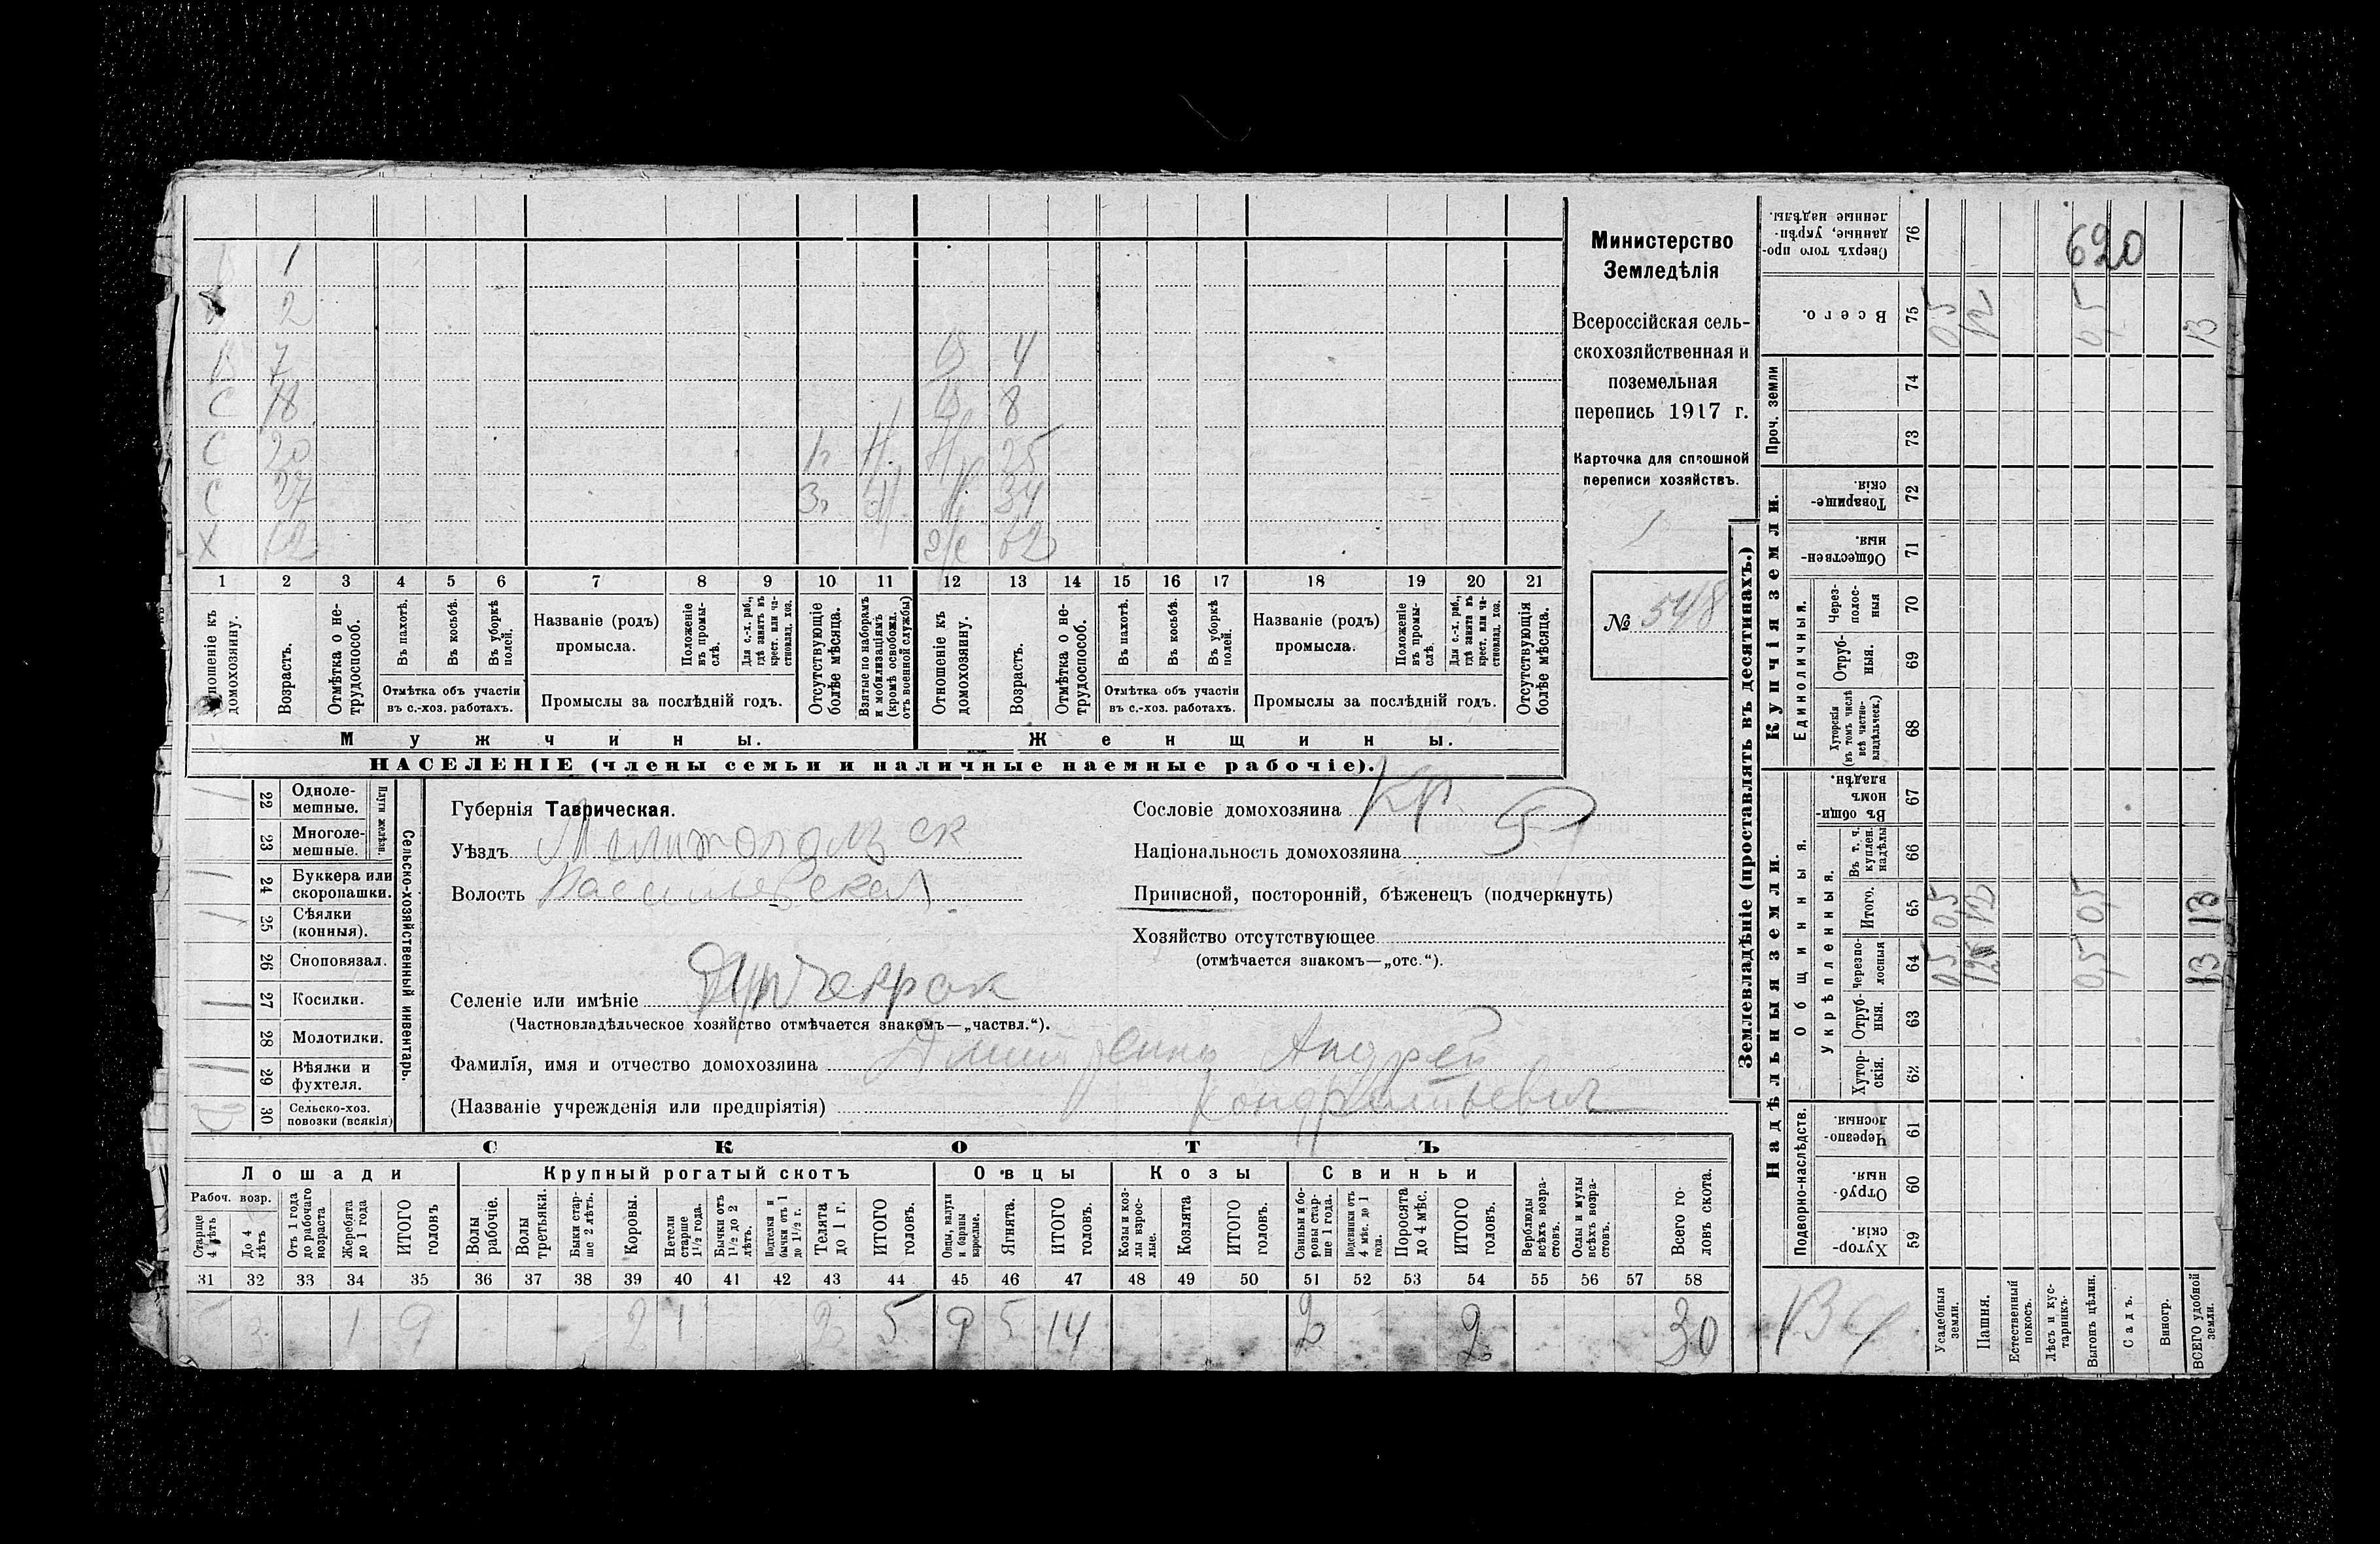 620
Министерство
Земледѣлія
Всероссійская сель-
скохозяйственная и
поземельная
перепись 1917 г.
Карточка для сплошной
переписи хозяйствъ.
1
№ 548
1
2
В 7 В 4
С 18 В 8
С 20 25
С 27 34
Х 62
1 2 3 4 5 6 7 8 9 10 11 12 13 14 15 16 17 18 19 20 21
Отношеніе къ домохозяину.
Возрастъ.
Отмѣтка о не-
трудоспособ.
Въ пахотѣ.
Въ косьбѣ.
Въ уборкѣ
полей.
Отмѣтка объ участіи
въ с.-хоз. работахъ.
Названіе (родъ)
промысла.
Положеніе
въ промы-
слѣ.
Для с.-х. раб.,
гдѣ занятъ въ
крест. или ча-
стновлад. хоз.
Промыслы за послѣдній годъ.
Отсутствующіе
болѣе мѣсяца.
Взятые по наборамъ
и мобилизаціямъ
(кромѣ освобожд.
отъ военной службы)
Отношеніе къ
домохозяину.
Возрастъ.
Отмѣтка о не-
трудоспособ.
Въ пахотѣ.
Въ косьбѣ.
Въ уборкѣ
полей.
Отмѣтка объ участіи
въ с.-хоз. работахъ.
Названіе (родъ)
промысла.
Положеніе
въ промы-
слѣ.
Для с.-х. раб.,
гдѣ занята въ
крест. или ча-
стновлад. хоз.
Промыслы за послѣдній годъ.
Отсутствующія
болѣе мѣсяца.
Мужчины.
Женщины.
НАСЕЛЕНІЕ (члены семьи и наличные наемные рабочіе).
22 Одноле-
мешные.
23 Многоле-
мешные.
Плуги желѣзн.
24 Буккера или
скоропашки.
25 Сѣялки
(конныя).
26 Сноповязал.
27 Косилки.
28 Молотилки.
29 Вѣялки и
фухтеля.
30 Сельско-хоз.
повозки (всякія)
Сельско-хозяйственный инвентарь.
Губернія Таврическая.
Уѣздъ Мелитопольск
Волость Василевская
Селеніе или имѣніе
(Частновладѣльческое хозяйство отмѣчается знакомъ—„частвл.“).
Фамилія, имя и отчество домохозяина Дмитренко Андрей
(Названіе учрежденія или предпріятія) Кондратьевич
Сословіе домохозяина Кр.
Національность домохозяина
Приписной, посторонній, бѣженецъ (подчеркнуть)
Хозяйство отсутствующее
(отмѣчается знакомъ—„отс.“).
СКОТЪ
Лошади
Крупный рогатый скотъ
Овцы
Козы
Свиньи
Рабоч. возр.
Старше
4 лѣтъ
До 4
лѣтъ
Отъ 1 года
до рабочаго
возраста
Жеребята
до 1 года
ИТОГО
головъ
Волы
рабочіе.
Волы
третьяки.
Быки стар-
ше 2 лѣтъ.
Коровы.
Нетели
старше
1½ года.
Бычки отъ
1½ до 2
лѣтъ.
Подтелки и
бычки отъ 1
до 1½ г.
Телята
до 1 г.
ИТОГО
головъ.
Овцы, валухи
и бараны
взрослые.
Ягнята.
ИТОГО
головъ.
Козы и коз-
лы взрос-
лые.
Козлята
ИТОГО
головъ.
Свиньи и бо-
ровы стар-
ше 1 года.
Подсвинки отъ
4 мѣс. до 1
года.
Поросята
до 4 мѣс.
ИТОГО
головъ.
Верблюды
всѣхъ возра-
стовъ.
Ослы и мулы
всѣхъ возра-
стовъ.
Всего го-
ловъ скота.
31 32 33 34 35 36 37 38 39 40 41 42 43 44 45 46 47 48 49 50 51 52 53 54 55 56 57 58
5 3 1 9 2 1 2 5 9 5 14 2 2 30
Землевладѣніе (проставлять въ десятинахъ.)
Надѣльныя земли.
Купчія земли.
Проч. земли
Подворно-наслѣдств.
Общинныя.
Укрѣпленныя.
Единоличныя.
Сверхъ того про-
данные, укрѣп-
ленные надѣлы. 76
Всего. 75 0,5 12 0,5 13
74
73
Товарище-
скія. 72
Обществен-
ныя. 71
Через-
полос-
ныя 70
Отруб-
ныя. 69
Хуторскія
(въ томъ числѣ
всѣ частно-
владѣльческ.) 68
Въ общин-
номъ
владѣн. 67
Въ т. ч.
куплен.
надѣлы 66
Итого. 65 0,5 12 0,5 13
Черезпо-
лосныя 64 0,5 12 0,5 13
Отруб-
ныя. 63
Хутор-
скія. 62
Черезпо-
лосныя. 61
Отруб-
ныя. 60
Хутор-
скія. 59
Усадебныя
земли.
Пашня.
Естественный
покосъ.
Лѣсъ и кус-
тарникъ.
Выгонъ цѣлин.
Садъ.
Виногр.
ВСЕГО удобной
земли.